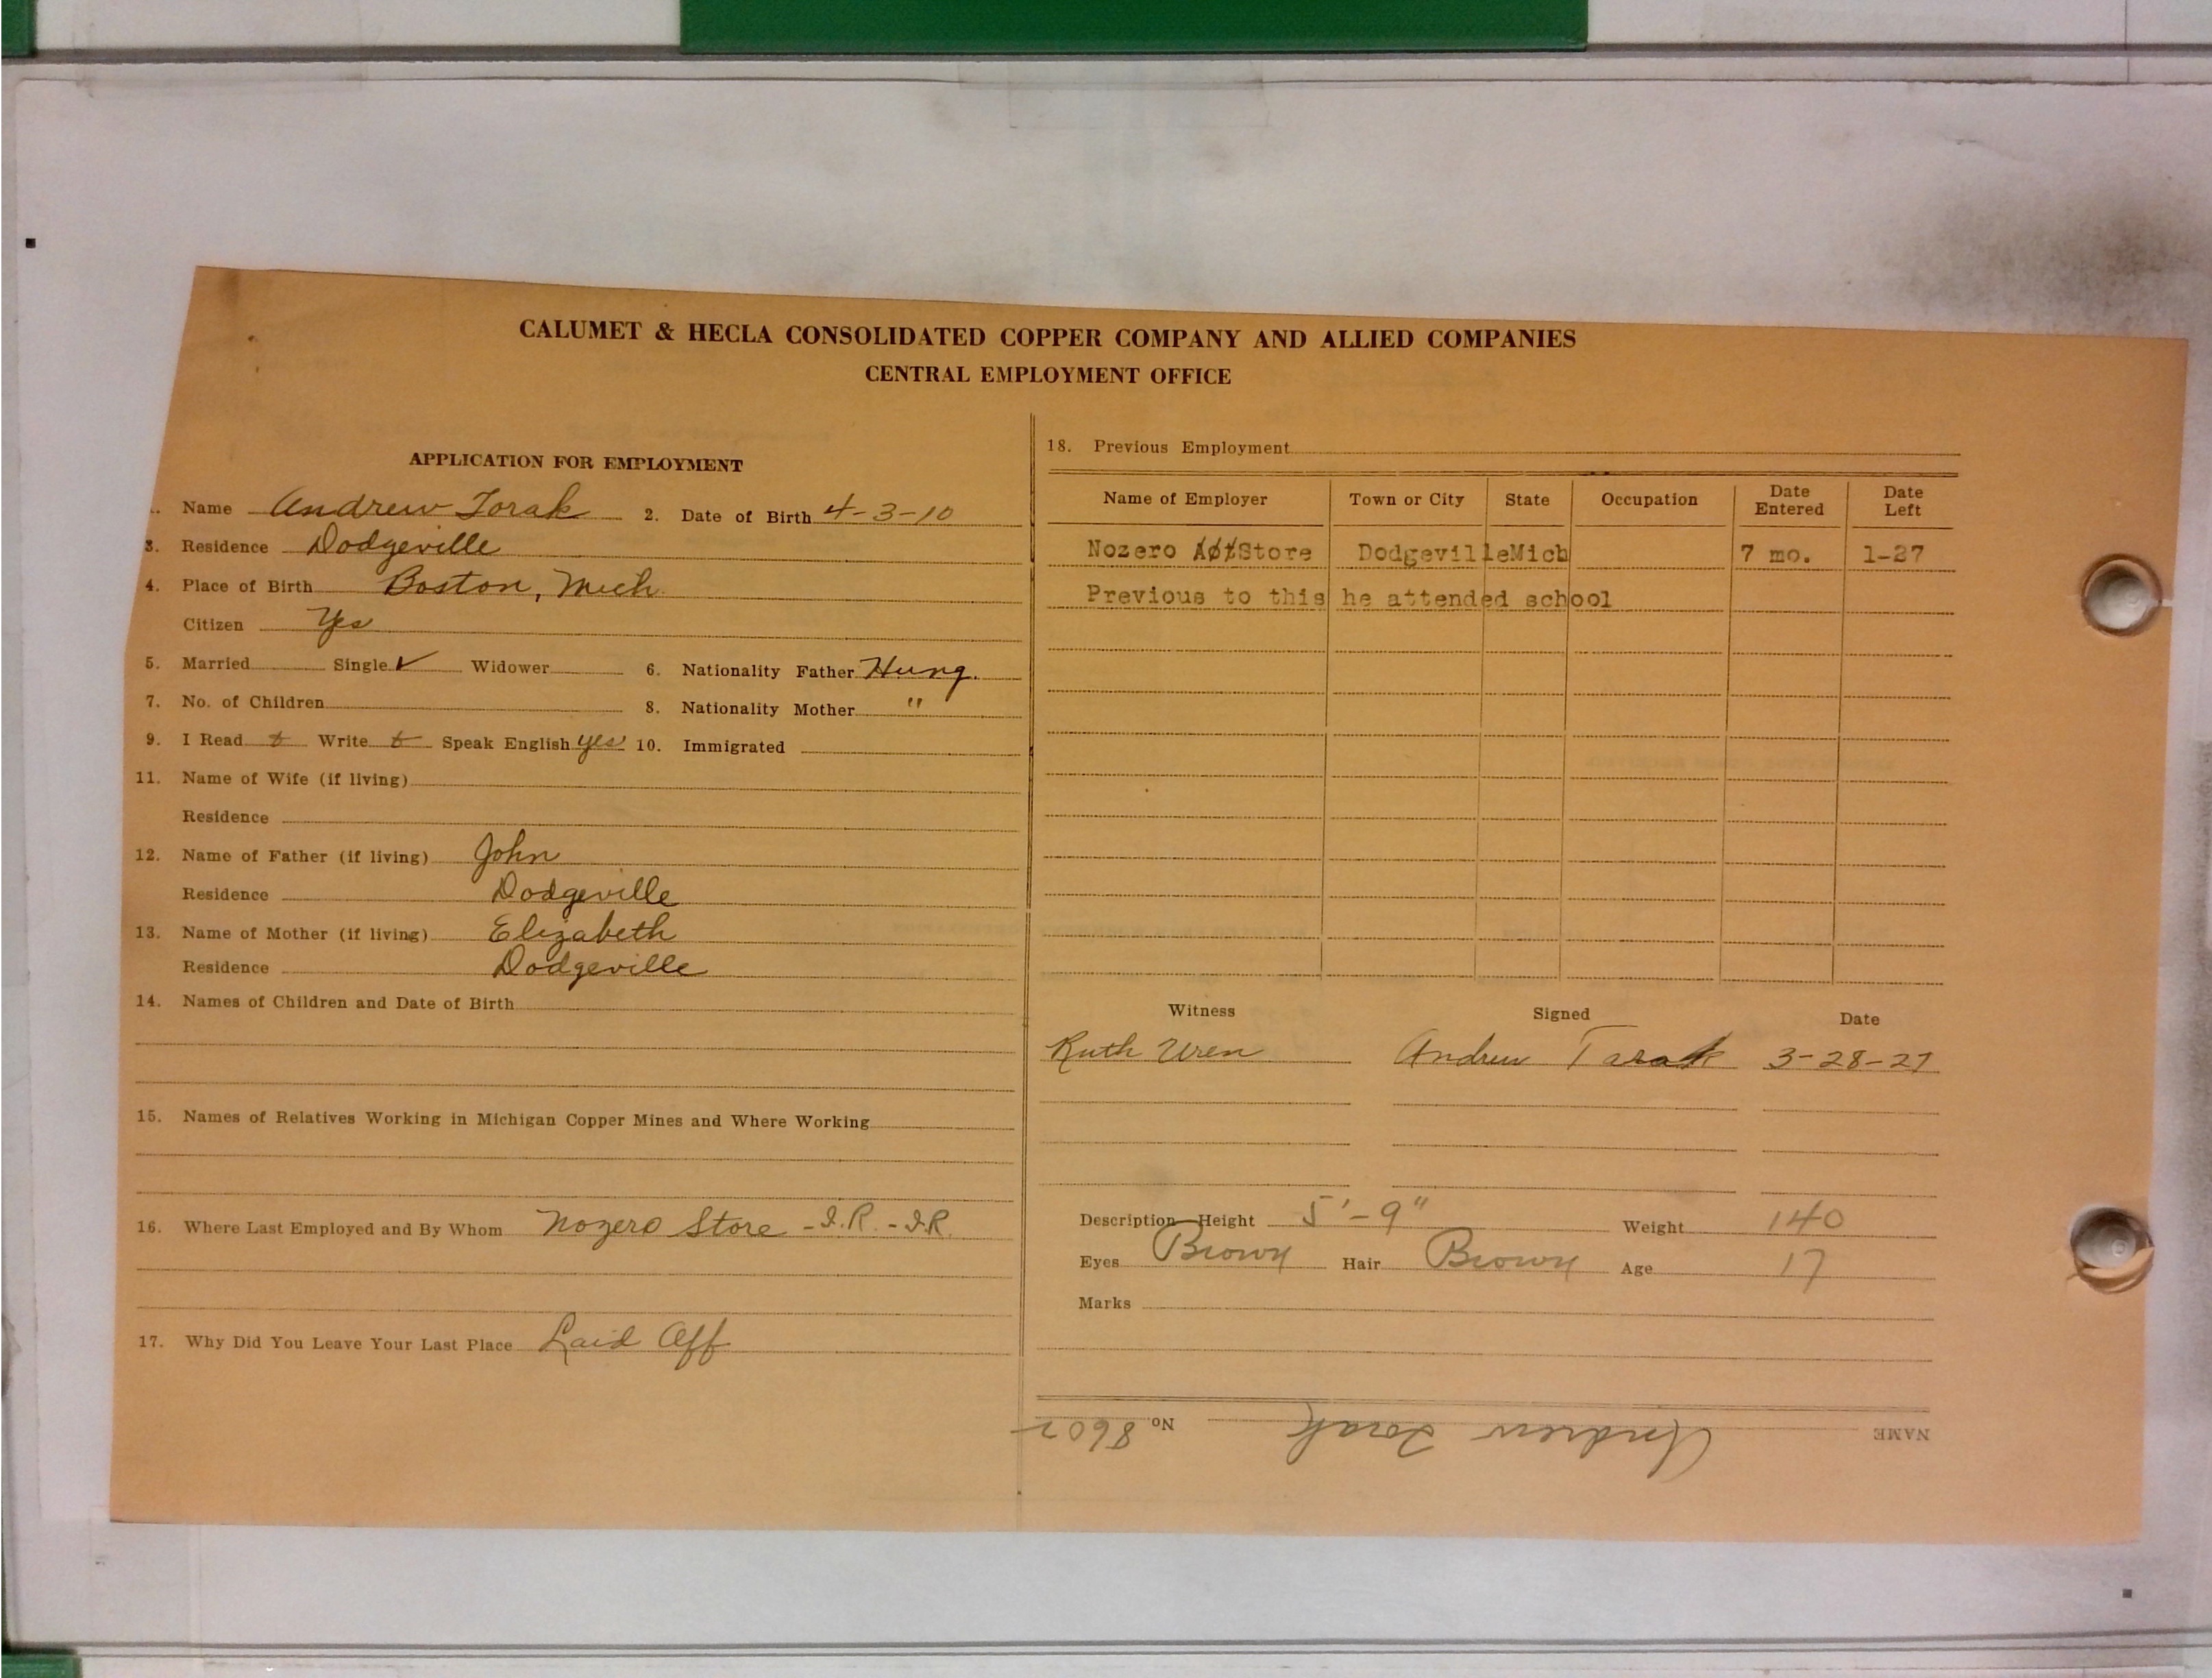 CALUMET & HECLA CONSOLIDATED COPPER COMPANY AND ALLIED COMPANIES
CENTRAL EMPLOYMENT OFFICE
APPLICATION FOR EMPLOYMENT
Name Andrew Torak 2. Date of Birth 4-3-10
3. Residence Dodgeville
4. Place of Birth Boston, Mich.
Citizen Yes
5. Married Single ✓ Widower 6. Nationality Father Hung.
7. No. of Children 8. Nationality Mother "
9. I Read & Write & Speak English yes 10. Immigrated
11. Name of Wife (if living)
Residence
12. Name of Father (if living) John
Residence Dodgeville
13. Name of Mother (if living) Elizabeth
Residence Dodgeville
14. Names of Children and Date of Birth
15. Names of Relatives Working in Michigan Copper Mines and Where Working
16. Where Last Employed and By Whom Nozero Store - I.R. - I.R.
17. Why Did You Leave Your Last Place Laid Off
18. Previous Employment
Name of Employer Town or City State Occupation Date Entered Date Left
Nozero Store Dodgeville Mich 7 mo. 1-27
Previous to this he attended school
Witness Signed Date
Ruth Uren Andrew Tarak 3-28-27
Description Height 5'-9" Weight 140
Eyes Brown Hair Brown Age 17
Marks
NAME Andrew Torak No. 8602